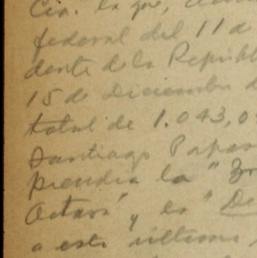 Cia. la que,
federal del 11 d
dente de la Repúbl
15 de Diciembre d
total de 1.043,0
Santiago Papas
prendia la "
Octava" y es "De
a este último